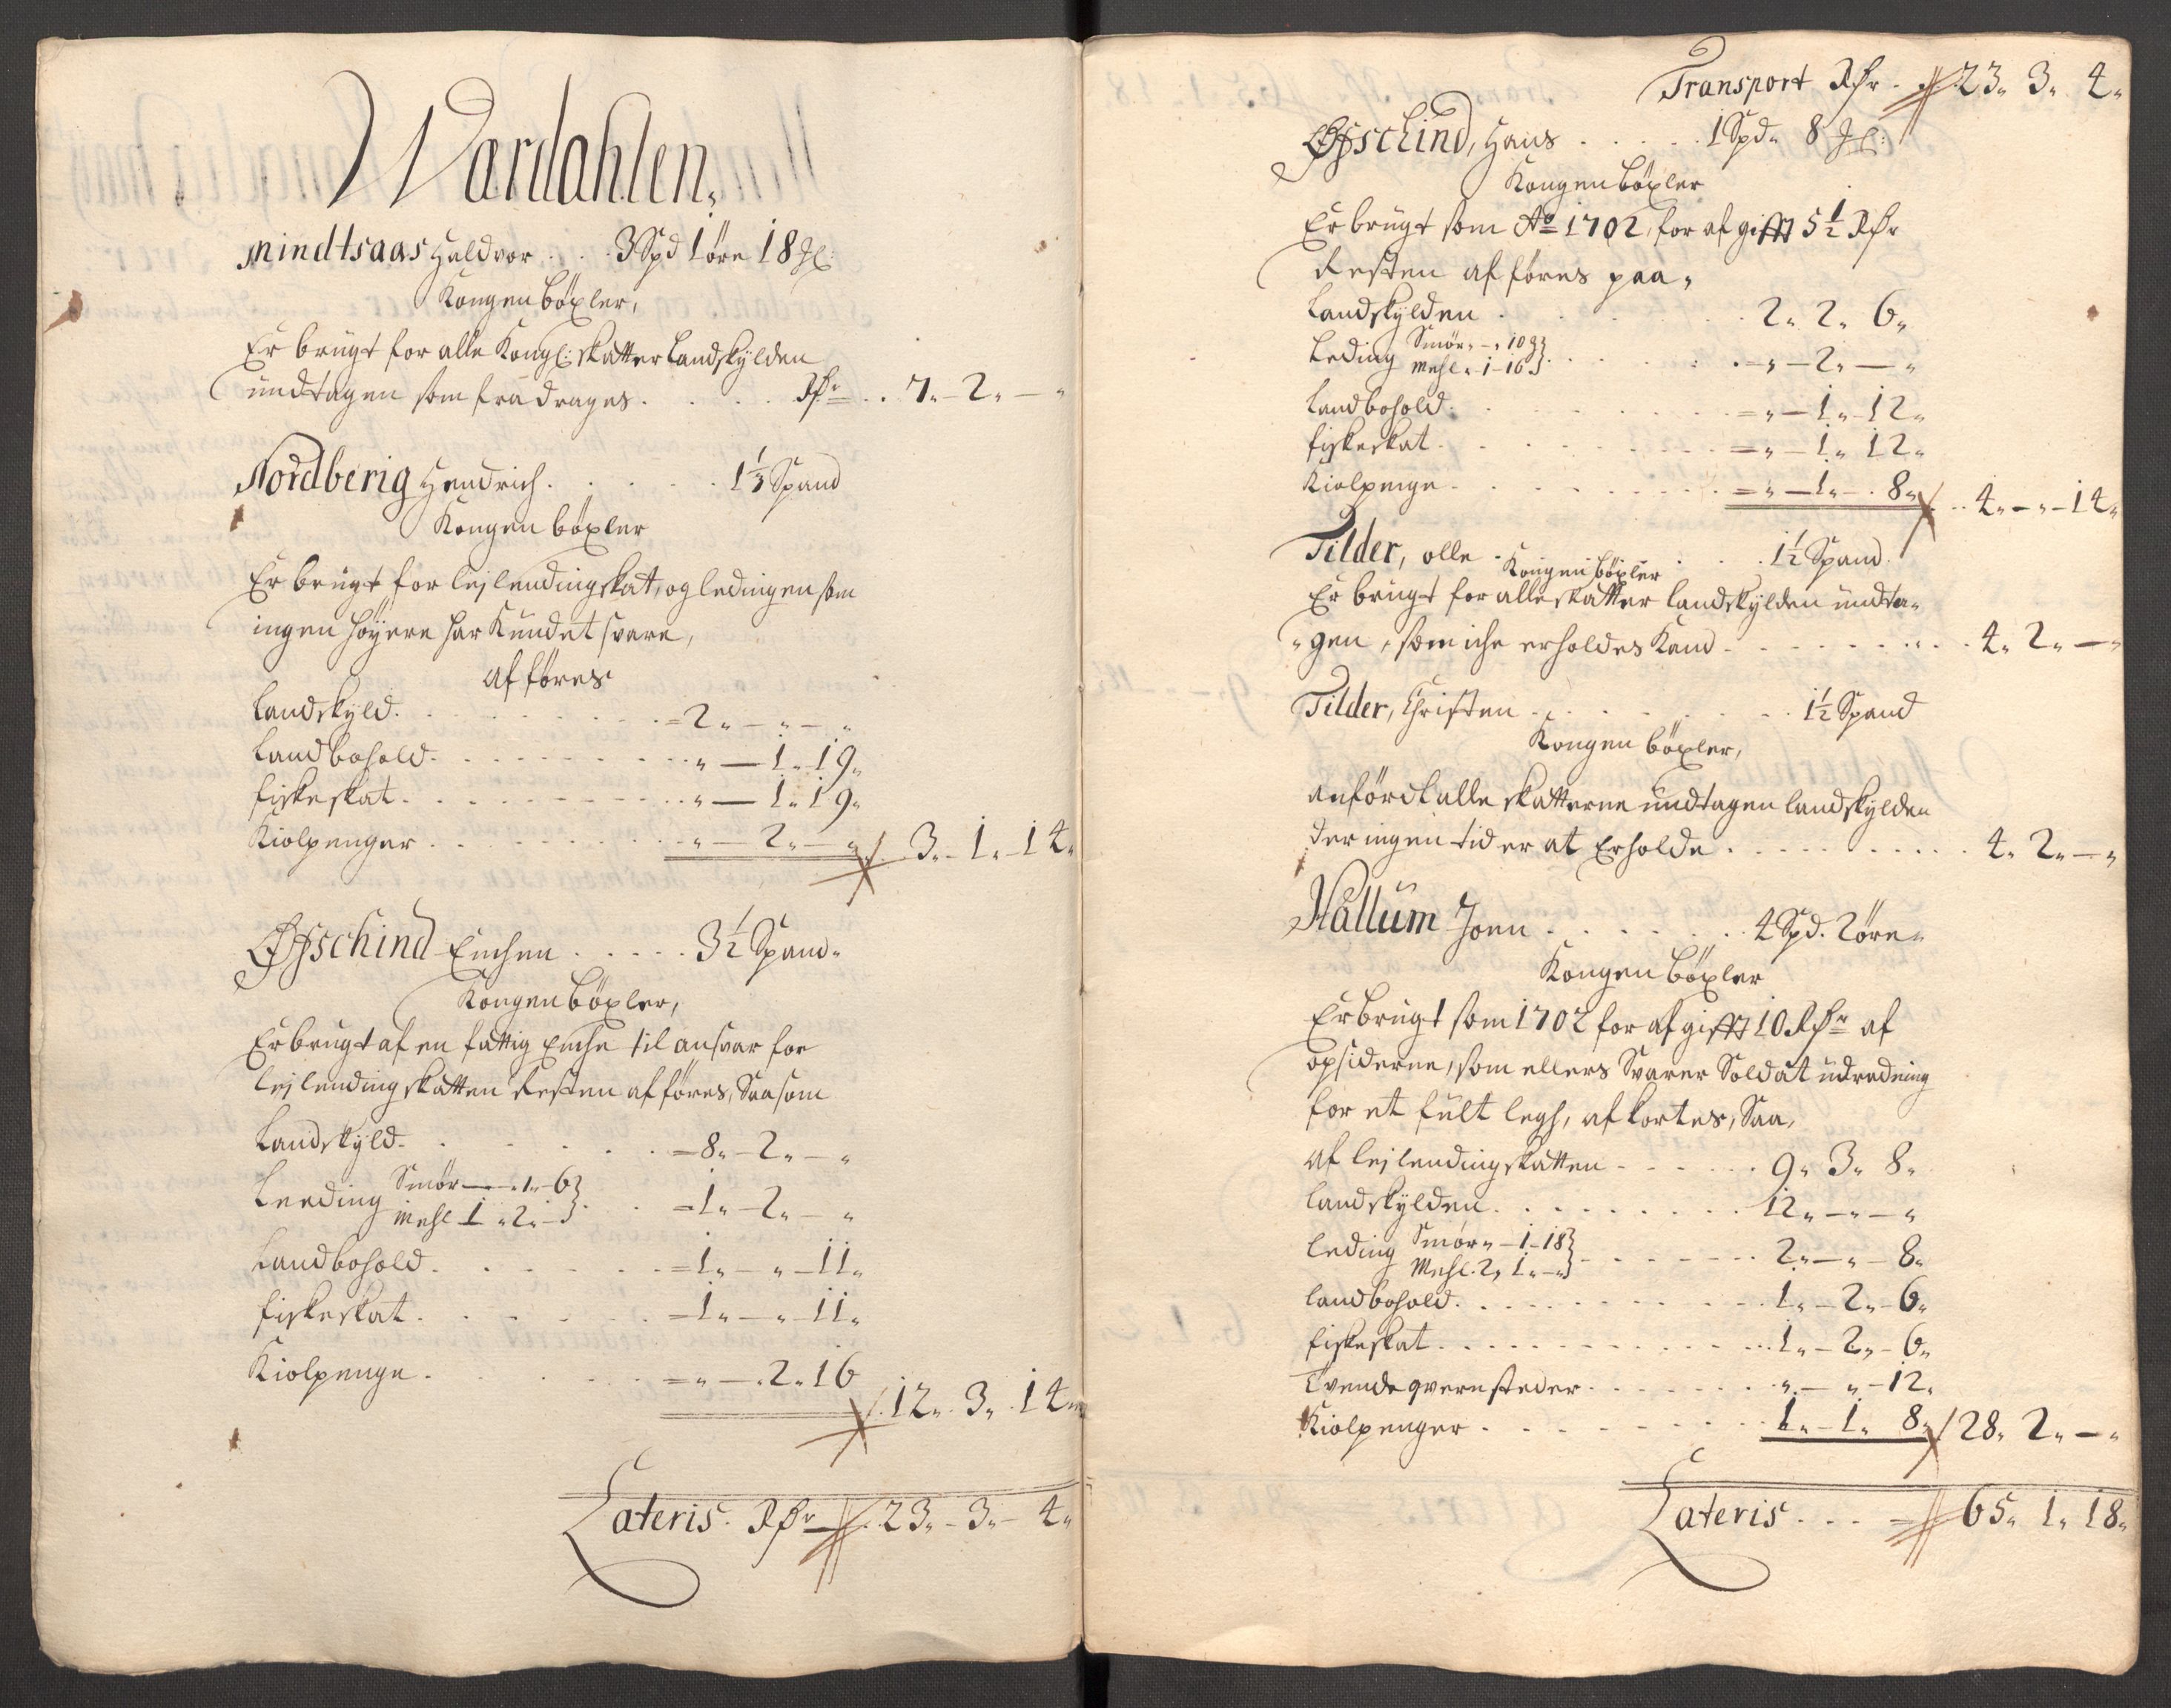 Wardahlen,
Mindtsaas Haldvor . . . 3 Spd 1 öre 18 Ml:
Kongen böxler,
Er brugt for alle Kongl: skatter Landskylden
undtagen som fradrages . . . . Rdr . . 7 „ 2 „ — „
Nordberig Hendrich . . . . . . 1 1/3 Spand
Kongen böxler
Er brugt for lejlendingskat, og ledingen som
ingen høyere har Kundet svare,
afføres
Landskyld . . . . . . = 2 „ — „ — „
Landbohold . . . . . . „ — 1 „ 19 „
fiskeskat . . . . . . „ — 1 „ 19 „
Kiolpenger . . . . . . „ — 2 „ — „ / 3 „ 1 „ 14 „
Øfschind Enchen . . . . . 3 1/2 Spand „
Kongen böxler,
Er brugt af en fattig Enche til ansvar for
lejlendingskatten Resten afføres, Saasom
Landskyld . . . . . . = 8 „ 2 „ — „
Leeding Smør — „ 1 „ 6 } . . = 1 „ 2 „ — „
Mehl 1 „ 2 „ — }
Landbohold . . . . . . = 1 „ — „ 11 „
fiskeskat . . . . . . = 1 „ — „ 11 „
Kiolpenge . . . . . . = „ — 2 „ 16
/ 12 „ 3 „ 14 „
Lateris . Rdr — // 23 „ 3 „ 4 „
Transport Rdr . // 23 „ 3 „ 4 „
Øfschind, Hans . . . . . 1 Spd „ 8 Ml:
Kongen böxler
Er brugt som Ao 1702, for afgifft 5 1/2 Rdr
Resten afføres paa „
Landskylden . . . . . . 2 „ 2 „ 6 „
Leding Smør „ — „ 10 9 } . . . . = „ — 2 „ — „
Mehl „ 1 — 16 }
Landbohold . . . . . . = „ — 1 „ 12 „
fiskeskat . . . . . . = „ — 1 „ 12 „
Kiolpenge . . . . . . = „ — 1 „ 8 „ / . . 4 „ — „ — 14 „
Tilder, olle . Kongen böxler . . . 1 1/2 Spand .
Er brugt for alle skatter landskylden undta„
„gen, som iche erholdes Kand . . . . . . 4 „ 2 „ — „
Tilder, Christen . . . . . . 1 1/2 Spand
Kongen böxler,
anfördt alle skatterne undtagen landskylden
der ingen tid er at Erholde . . . . . . 4 „ 2 „ — „
Hallum Joen . . . . . . . 4 Spd . 2 öre „
Kongen böxler
Er brugt som 1702 for afgifft 10 Rdr af
opsiderne, som ellers Svarer Soldat udredning
for et fült legh, afkortes, Saa,
af lejlendingskatten . . . . . 9 „ 3 „ 8 „
landskylden . . . . . . 12 „ — „ — „
leding Smør „ — 1 — 18 } . . . . . 2 „ — „ — 8 „
Mehl . 2 „ 1 „ — „ }
landbohold . . . . . . 1 „ — 2 „ — 6 „
fiskeskat . . . . . . 1 „ — 2 „ — 6 „
Tvende qvernsteder . . . . . . „ — „ — 12 „
Kiolpenger . . . . . . 1 „ — 1 „ 8 „ / 28 „ 2 „ — „
Lateris . . . = // 65 „ 1 „ 18 „